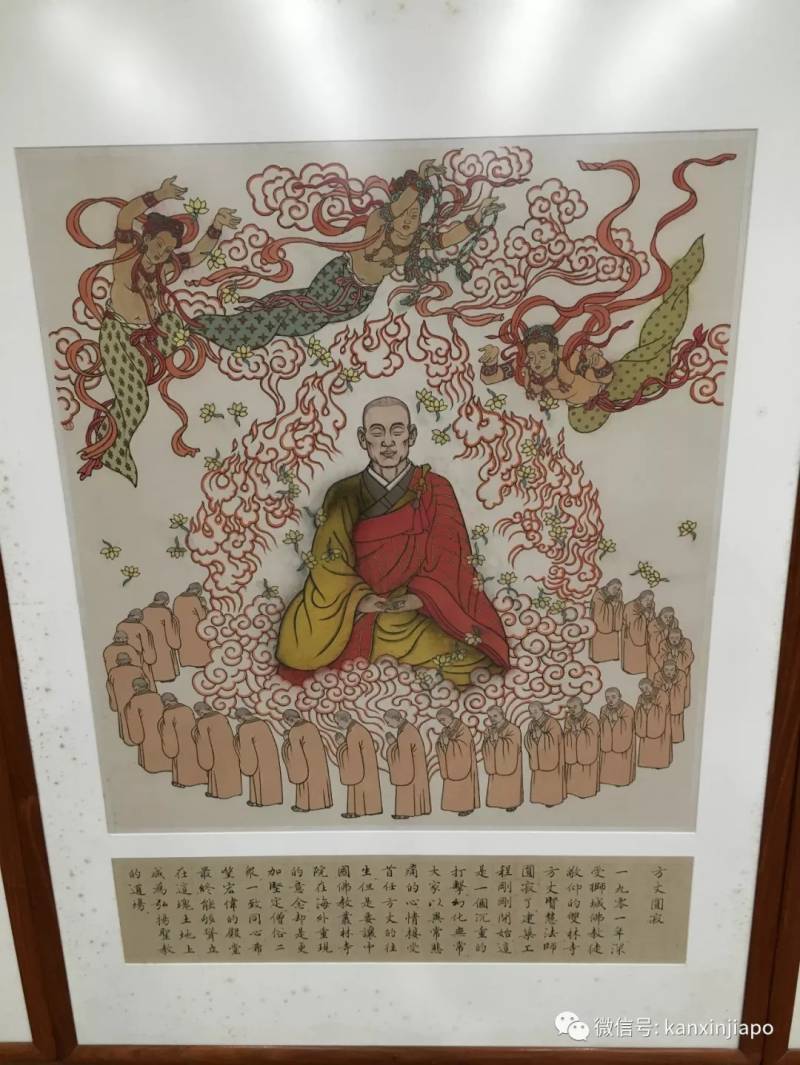 方丈圓寂
一九〇一年深
受獅城佛教徒
敬仰的雙林寺
方丈賢慧法師
圓寂了建築工
程剛剛開始這
是一個沉重的
打擊幻化無常
大家以無常悲
痛的心情接受
首任方丈的往
生但是要讓中
國佛教叢林寺
院在海外重現
的意念卻是更
加堅定僧俗二
眾一致同心希
望宏偉的殿堂
最終能夠聳立
在這塊土地上
成為弘揚聖教
的道場
微信号: kanxinjiapo